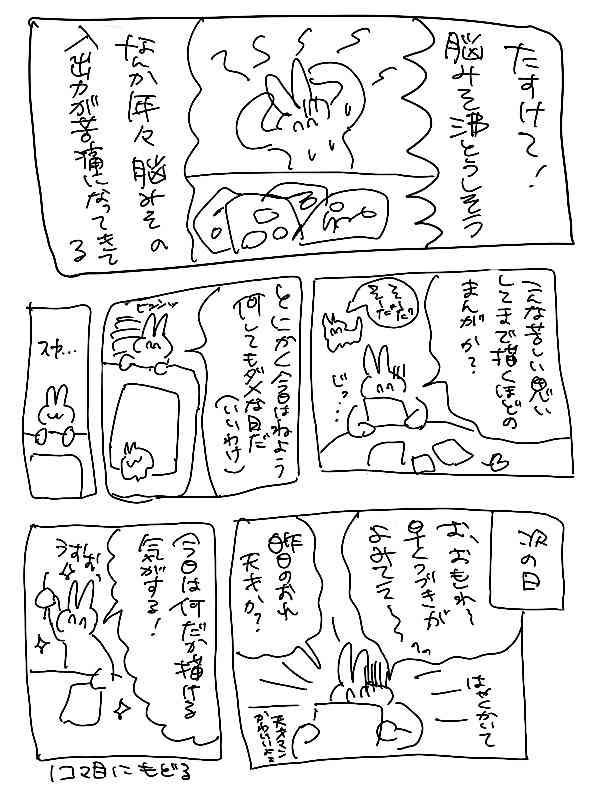 たすけて!
脳みそ沸とうしそう
なんか年々脳みその
入出力が苦痛になってきて
る
こんな苦しい思い
してまで描くほどの
まんがか?
そーだ
そーだ
じっ…
とにかく今日はねよう
何してもダメな日だ
(いいわけ)
スヤ…
次の日
お、おもれ〜
早くつづきが
よみてえ〜〜っ
昨日のおれ
天才か?
はやくかいて
天才マン
かわいいよ
今日は何だか描ける
気がする!
うおお
1コマ目にもどる